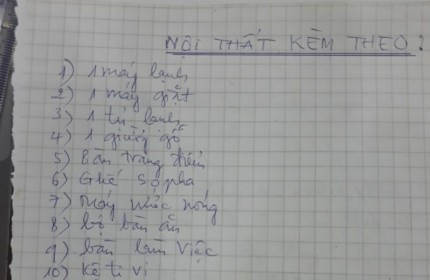 NỘI THẤT KÈM THEO:
1) 1 máy lạnh
2) 1 máy giặt
3) 1 tủ lạnh
4) 1 giường gỗ
5) Bàn trang điểm
6) Ghế sopha
7) Máy nước nóng
8) bộ bàn ăn
9) bàn làm việc
10) Kệ ti vi